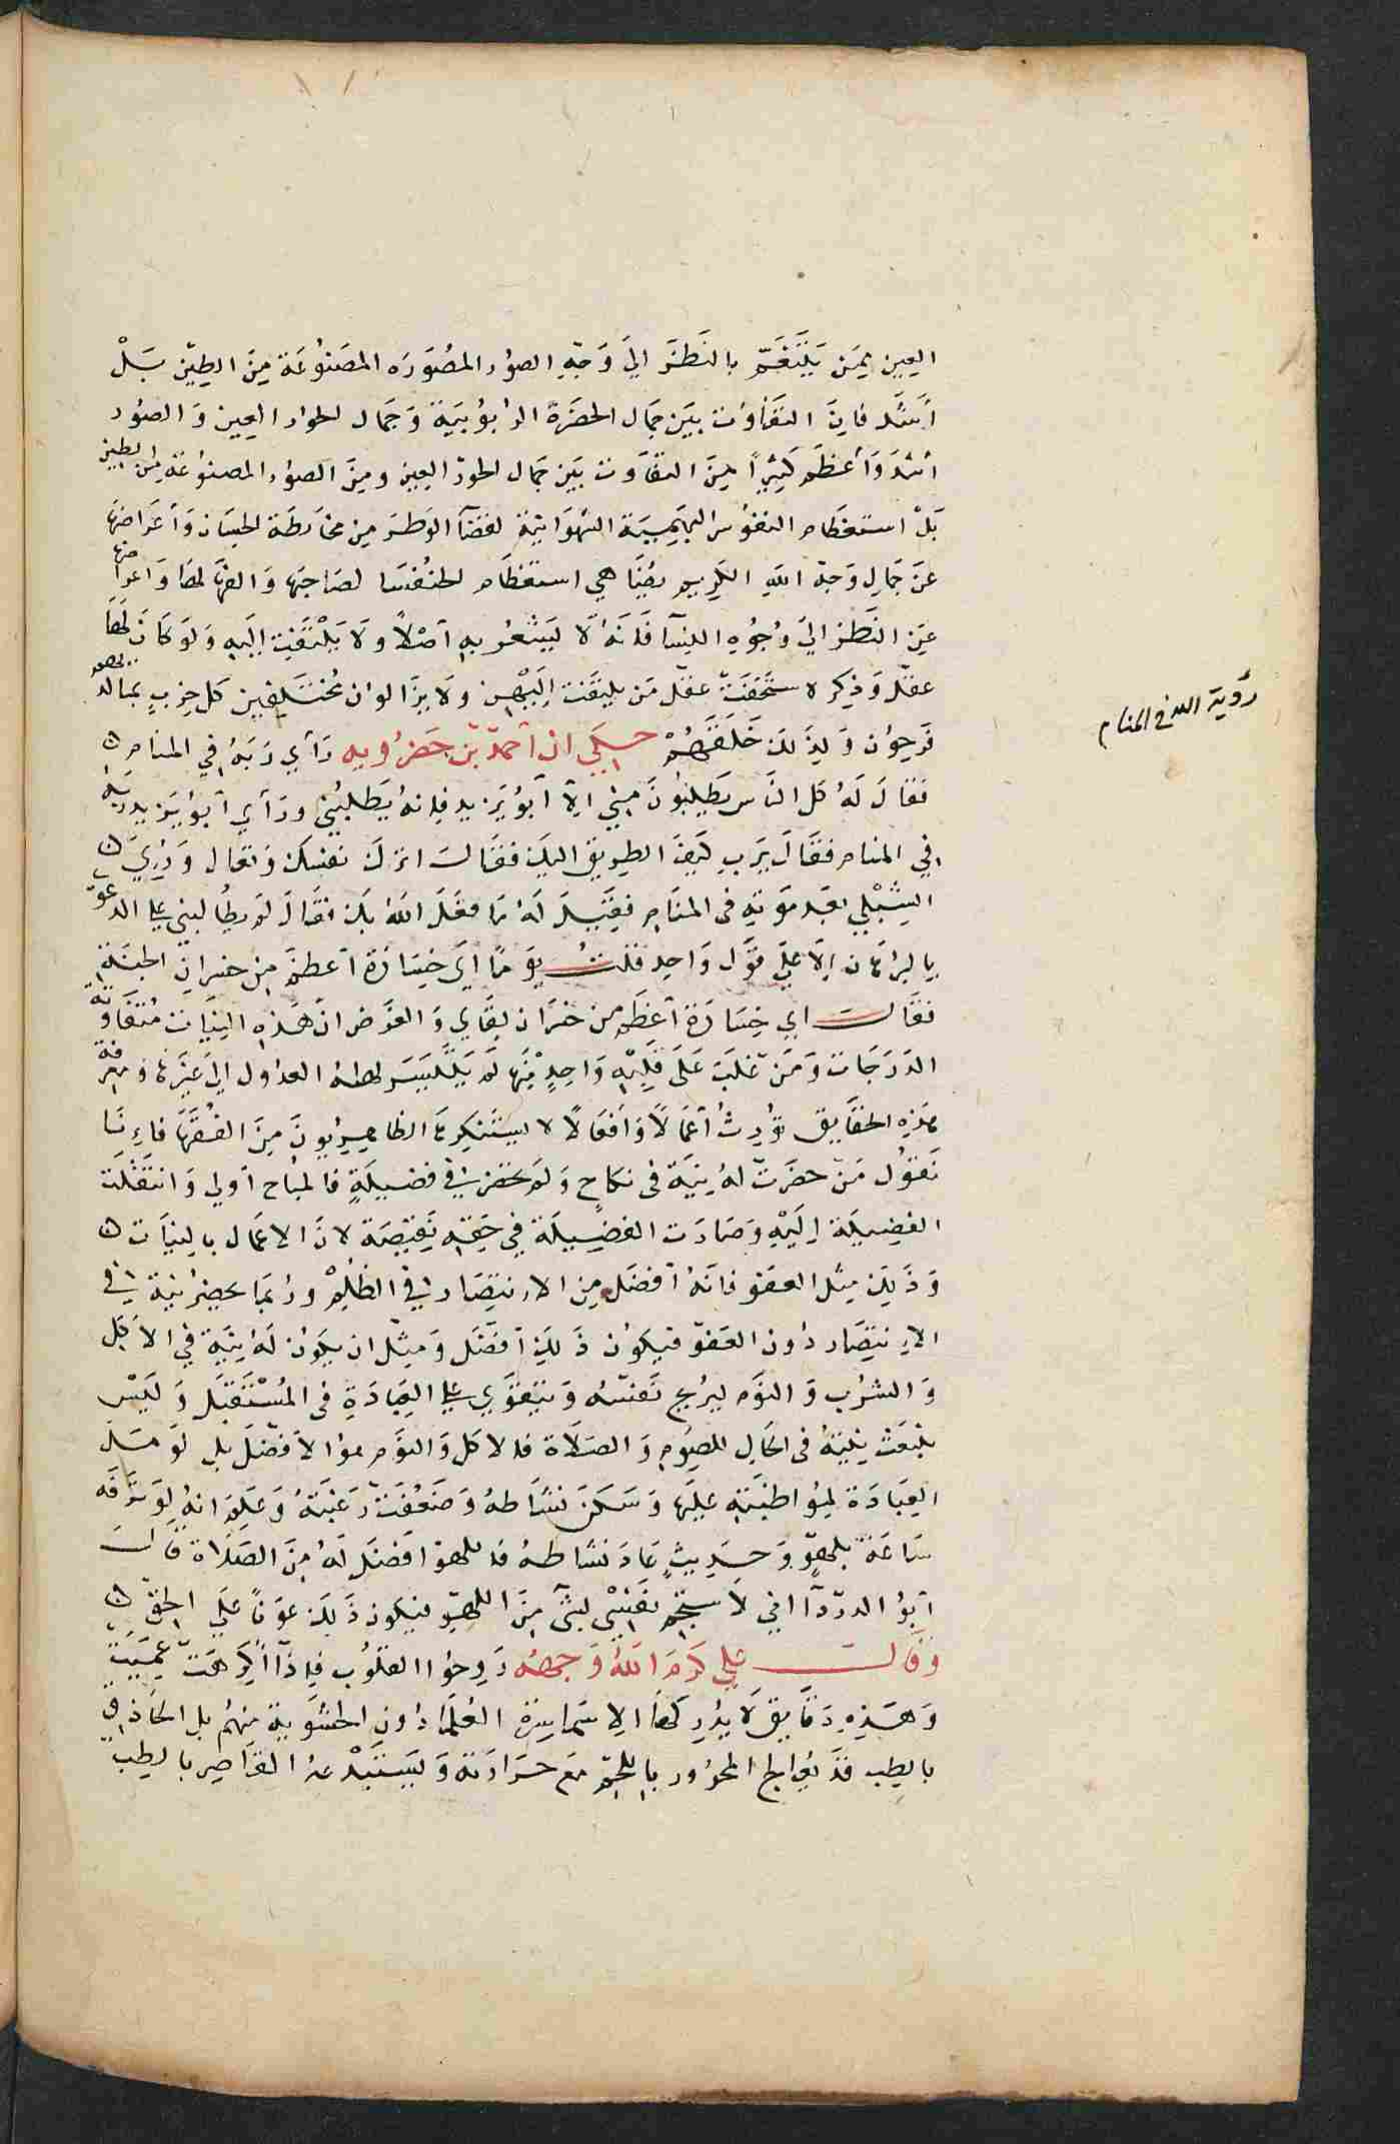 العين يمن يتنعم بالنظر الي وجه الصور المصوره المصنوعة من الطين بل
أشد فان التفاوت بين جمال الحضرة الربوبية وجمال الحوار العين والصور
اشد وأعظم كثيرا من التفاوت بين جمال الحور العين ومن الصور المصنوعة من الطين
بل استعظام النفوس البهيمية الشهوانية لقضآ الوطر من مخارطة الحسان وأعراضها
عن جمال وجه الله الكريم يضاهي استعظام الخنفسا لصاحبها والفها لها واعراضها
عن النظر الي وجوه النسآ فانه لا يشعر به أصلا ولا يلتفت إليه ولو كان لها
عقل وذكر لاستخفت عقل من يلتفت إليهن ولا يزالوان مختلفين كل حزب بما لديهم
فرحون ولذلك خلقهم حكي ان أحمد بن حضرويه رأي ربه في المنام ن
فقال له كل الناس يطلبون مني الا أبو يزيد فإنه يطلبني ورأي أبو يزيد ربه
في المنام فقال يرب كيف الطريق اليك فقالت اترك نفسك وتعال ورؤي ن
الشبلي بعد موته في المنام فقيل له ما فعل الله بك فقال لم يطالبني علي الدعوي
بالبرهان إلا علي قول واحد قلت يوما اي خسارة أعظم من خسران الجنة
فقالت اي خسارة أعظم من خسران لقاي والغرض ان هذه النيات متفاوتة
الدرجات ومن غلبت على قلبه واحد منها لم يتيسر له العدول الي غيرها ومعرفة
هذه الحقايق تورث أعمالا وأفعالا لا يستنكرها الظاهريون من الفقها فإنا
نقول من حضرت له نية في نكاح ولم تحضر في فضيلة فالمباح أولي وانتقلت
الفضيلة إليه وصارت الفضيلة في حقه نقيصة لان الاعمال بالنيات ن
وذلك مثل العفو فانه أفضل من الانتصار في الظلم وربما يحضر نية في
الانتصار دون العفو فيكون ذلك أفضل ومثل ان يكون له نية في الأكل
والشرب والنوم ليريح نفسه ويتقوي علي العبادة في المستقبل وليس
يلبعث نيته في الحال للصوم والصلاة فالاكل والنوم هو الأفضل بل لو مل
العبادة لمواظبته عليها وسكن نشاطه وضعفت رغبته وعلم انه لو ترفه
ساعة بلهو وحديث عاد نشاطه فاللهو افضل له من الصلاة قالت
أبو الدردآ اني لأستجم نفسي بشئ من اللهو فيكون ذلك عونا علي الحق ن
وقالت علي كرم الله وجهه روحوا القلوب فإذا أكرهت عميت
وهذه دقايق لا يدركها الا سماسرة العلما دون الحشوية منهم بل الحاذق
بالطب قد يعالج المحرور باللحم مع حرارته ويستبعده القاصر بالطب
رؤية الله في المنام